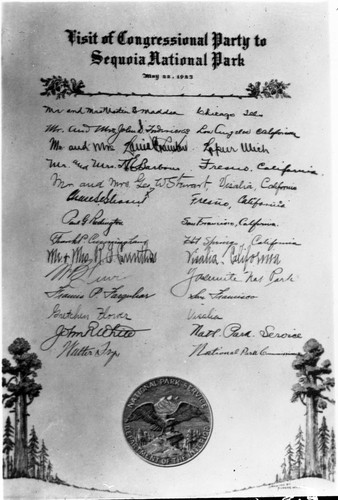 Visit of Congressional Party to
Sequoia National Park
May 22, 1923
Mr and Mrs Martin B Madden Chicago Ills
Mr. and Mrs John D. Los Angeles California
Mr and Mrs Louis Cramton Lapeer Mich
Mr. and Mrs. Barbour Fresno, California
Mr and Mrs Geo. W. Stewart, Visalia, California
Fresno, California
Paul G Redington San Francisco, California
Frank P. Cunningham Hot Springs California
Mr & Mrs. Visalia California
Yosemite Nat Park
Francis P. Farquhar San Francisco
Gretchen Visalia
John R White Natl Park Service
Walter Fry National Park
NATIONAL PARK SERVICE
DEPARTMENT OF THE INTERIOR